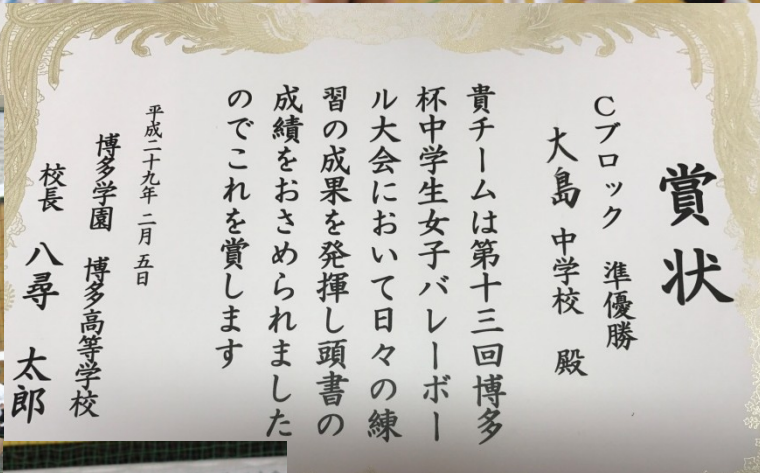 賞状
Cブロック 準優勝
大島 中学校 殿
貴チームは第十三回博多
杯中学生女子バレーボー
ル大会において日々の練
習の成果を発揮し頭書の
成績をおさめられました
のでこれを賞します
平成二十九年 二月 五日
博多学園 博多高等学校
校長 八尋 太郎